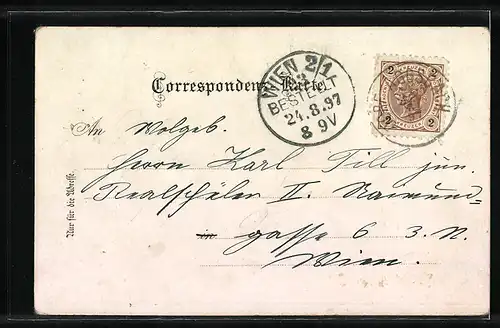 Correspondenz-Karte.
WIEN 2/1
BESTELLT
24.8.97
8 9V
2 2
2 2
An Wolgeb.
Herrn Karl Till jun.
Realschüler II.
in gasse 6 3. N.
Wien.
Nur für die Adresse.